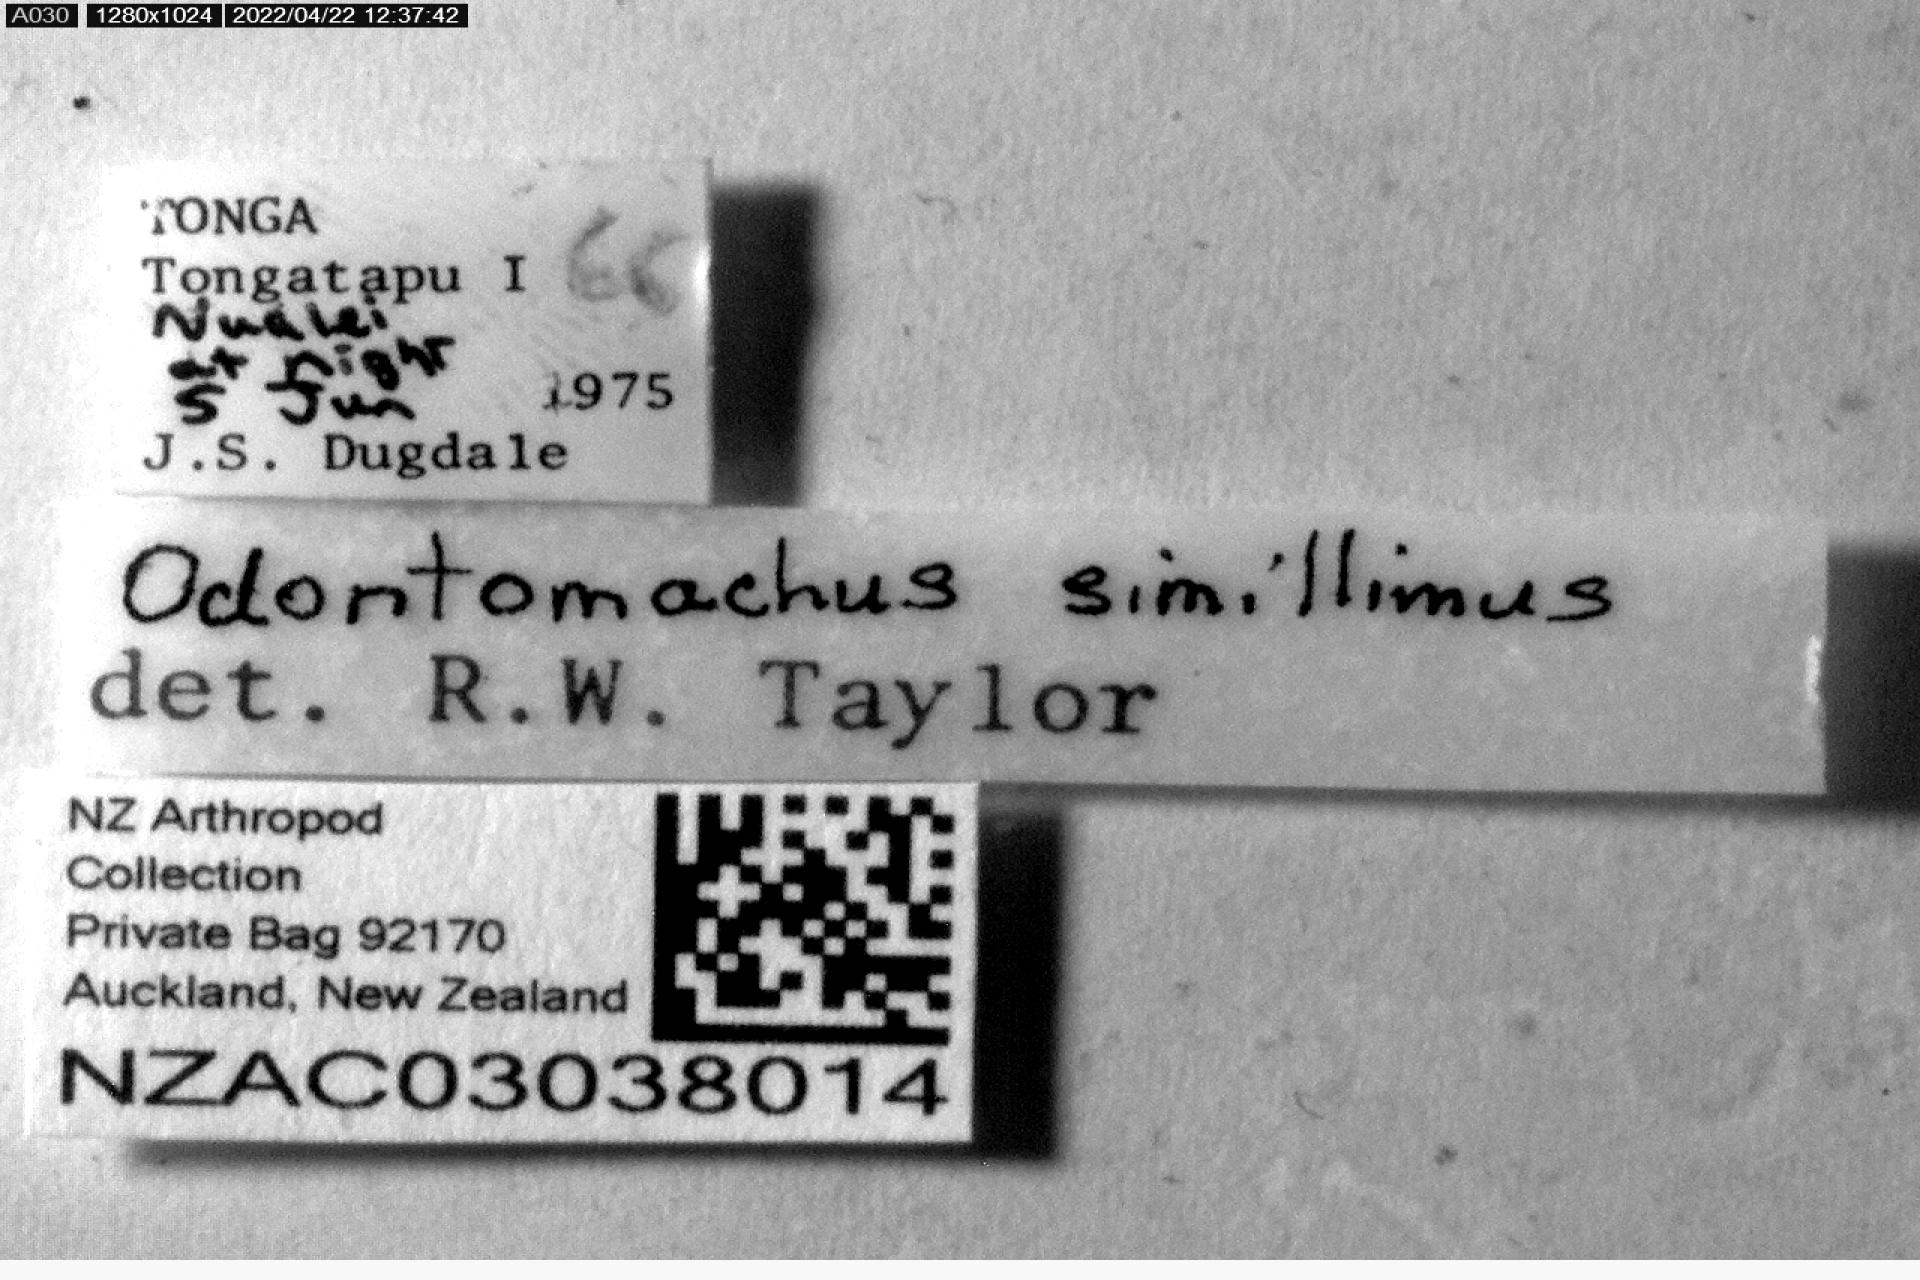 A030 1280x1024 2022/04/22 12:37:42
TONGA
Tongatapu I
at night
5 Jun 1975
J.S. Dugdale
Odontomachus simillimus
det. R.W. Taylor
NZ Arthropod
Collection
Private Bag 92170
Auckland, New Zealand
NZAC03038014